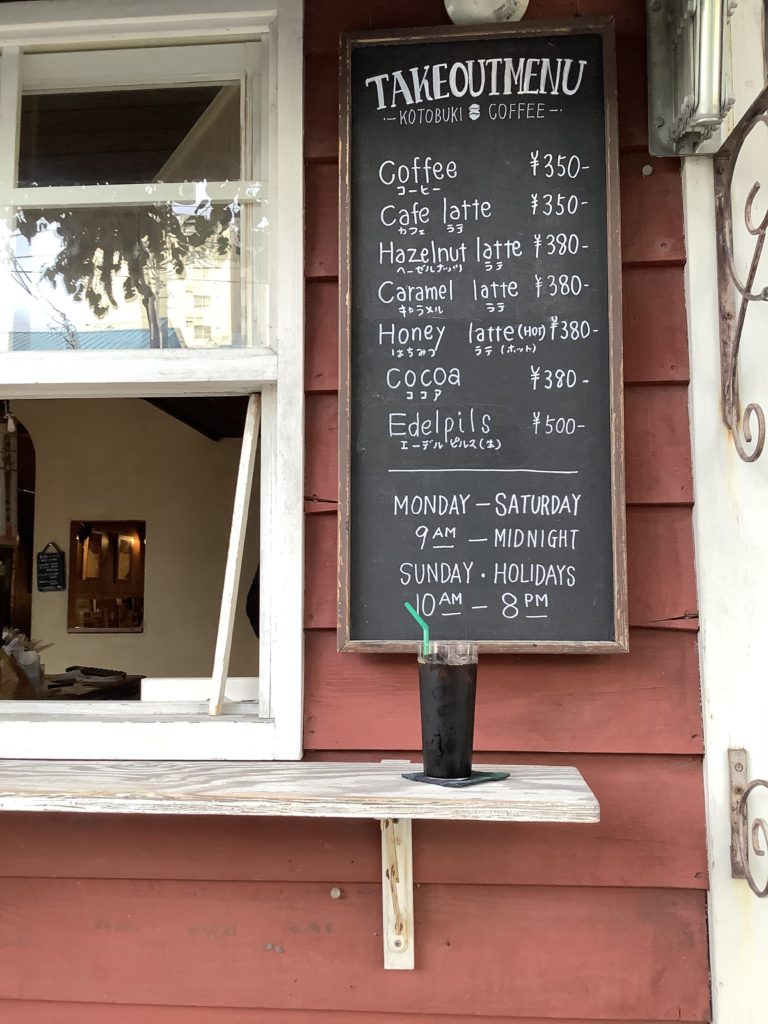 TAKEOUTMENU
KOTOBUKI COFFEE
Coffee ¥350-
コーヒー
Cafe latte ¥350-
カフェ ラテ
Hazelnut latte ¥380-
ヘーゼルナッツ ラテ
Caramel latte ¥380-
キャラメル ラテ
Honey latte (HOT) ¥380-
はちみつ ラテ (ホット)
Cocoa ¥380-
ココア
Edelpils ¥500-
エーデルピルス(生)
MONDAY — SATURDAY
9AM — MIDNIGHT
SUNDAY · HOLIDAYS
10AM — 8PM